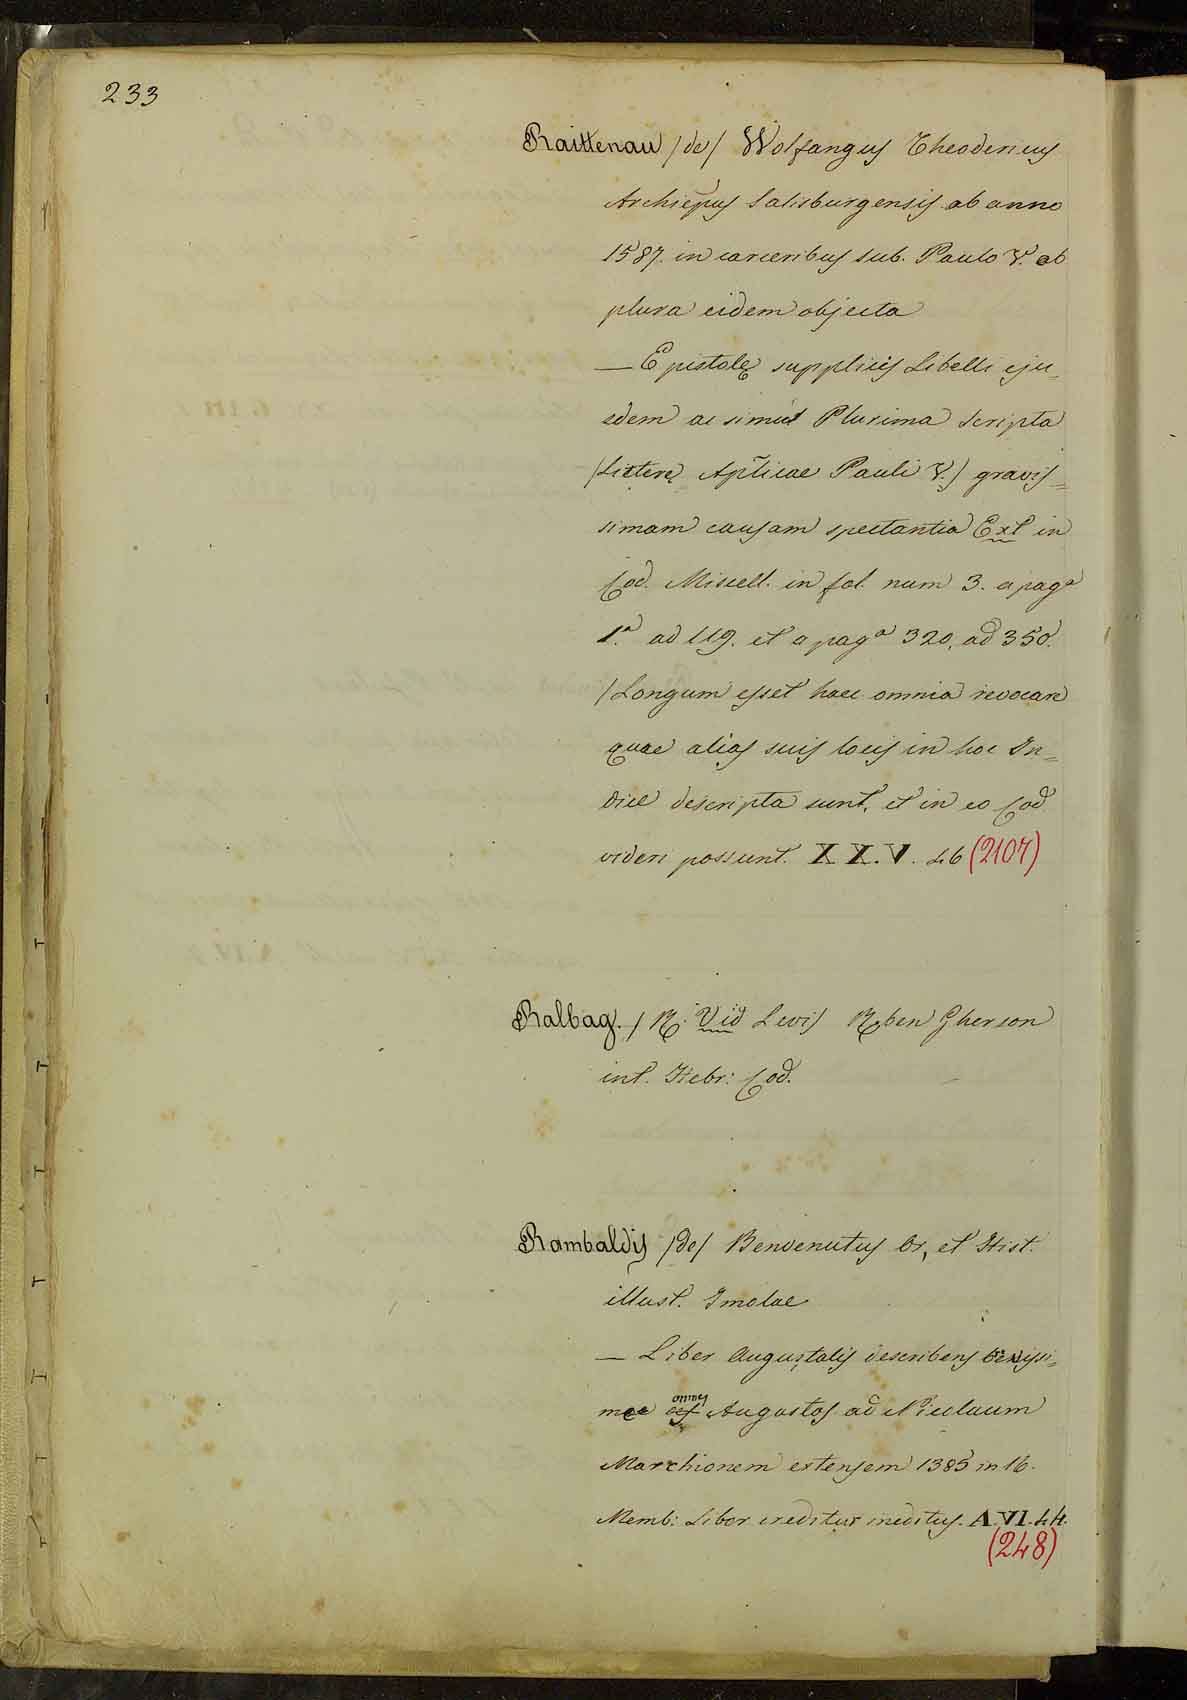 233
Raittenau /de/ Wolfangus Theodericus
Archiepus Salisburgensis ab anno
1587. in carceribus sub. Paulo V. ob
plura eidem objecta
— Epistolę supplicis Libelli eju_
sdem ac simul Plurima Scripta
/Litterę Aplicae Pauli V./ gravis=
simam causam spectantia Ext in
Cod. Miscell. in fol. num 3. a pagª
1.ª ad 119. et a pagª 320. ad 350.
/Longum esset haec omnia revocare
quae alias suis locis in hoc In=
dice descripta sunt, et in eo Cod
videri possunt. XX.V. 46 (2107)
Ralbag. / R. Vid Levis R. ben Gherson
int. Hebr: Cod.
Rambaldis /de/ Benvenutus Or, et Hist.
illust. Imolae
— Liber Augustalis describens brevissi=
mee omnes Augustos ad Niclaum
Marchionem estensem 1385 in 16.
Memb: Liber creditur ineditus. A.VI.44.
(248)